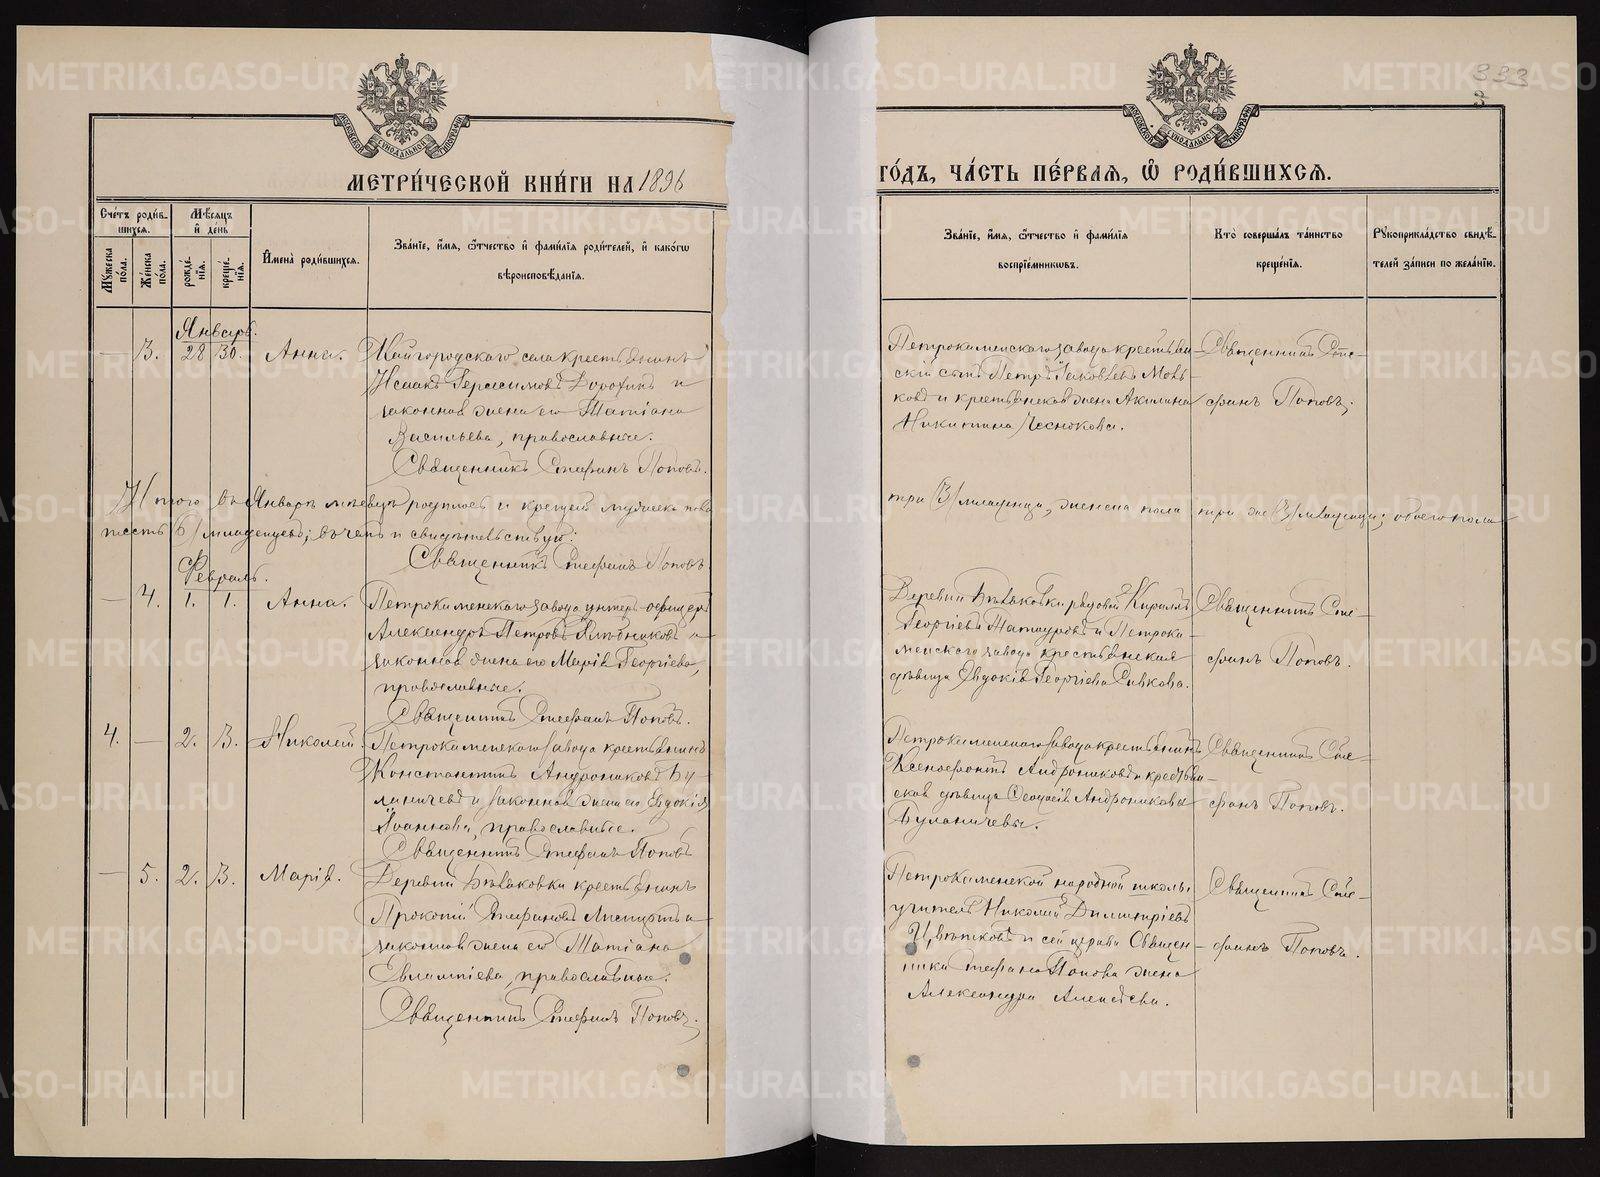 METRIKI.GASO-URAL.RU
333
МОСКОВСКОЙ СѴНОДАЛЬНОЙ ТИПОГРАФІИ
МЕТРИ́ЧЕСКОЙ КНИ́ГИ НА 1896
ГО́ДЪ, ЧА́СТЬ ПЕ́РВАЯ, Ѡ҆ РОДИ́ВШИХСЯ.
Сче́тъ роди́вшихся.
Му́жеска по́ла.
Же́нска по́ла.
Мѣ́сяцъ и҆ де́нь
рожде́нїя.
креще́нїя.
И҆мена̀ роди́вшихся.
Зва́нїе, и҆́мя, ѻ҆́тчество и҆ фами́лїя роди́телей, и҆ како́гѡ вѣроисповѣ́данїя.
Зва́нїе, и҆́мя, ѻ҆́тчество и҆ фами́лїя воспрїе́мникѡвъ.
Кто̀ соверша́лъ та́инство креще́нїя.
Рꙋкоприкла́дство свидѣ́телей за́писи по жела́нїю.
Январь.
— 3. 28 30. Анна. Кайгородскаго села крестьянинъ
Исаакъ Герасимовъ Дорохинъ и
законная жена его Татіана
Васильева, православные.
Священникъ Стефанъ Поповъ.
Петрокаменскаго завода крестьян-
скій сынъ Петръ Іаковлевъ
и крестьянская жена Акилина
Никитина Чеснокова.
Священникъ Сте-
фанъ Поповъ.
Итого въ Январѣ мѣсяцѣ родилось и крещено мужеска пола
три (3) младенца, женска пола три же (3) младенца; обоего пола
шесть (6) младенцевъ; въ чемъ и свидѣтельствую:
Священникъ Стефанъ Поповъ.
Февраль.
— 4. 1. 1. Анна. Петрокаменскаго завода унтеръ-офицеръ
Александръ Петровъ и
законная жена его Марія Георгіева,
православные.
Священникъ Стефанъ Поповъ.
Деревни Бѣляковки рядовой Кириллъ
Георгіевъ Татауровъ и Петрока-
менскаго завода крестьянская
дѣвица Евдокія Георгіева Сивкова.
Священникъ Сте-
фанъ Поповъ.
4. — 2. 3. Николай. Петрокаменскаго завода крестьянинъ
Константинъ Андрониковъ Бу-
ланичевъ и законная жена его Евдокія
Іоаннова, православные.
Священникъ Стефанъ Поповъ
Петрокаменскаго завода крестьянинъ
Ксенофонтъ Андрониковъ и крестьян-
ская дѣвица Феодосія Андроникова
Буланичевы.
Священникъ Сте-
фанъ Поповъ.
— 5. 2. 3. Марія. Деревни Бѣляковки крестьянинъ
Прокопій Стефановъ и
законная жена его Татіана
Евлампіева, православные.
Священникъ Стефанъ Поповъ.
Петрокаменской народной школы
учитель Николай Димитріевъ
Цвѣтковъ и сей церкви Священ-
ника Стефана Попова жена
Александра Алексѣева.
Священникъ Сте-
фанъ Поповъ.